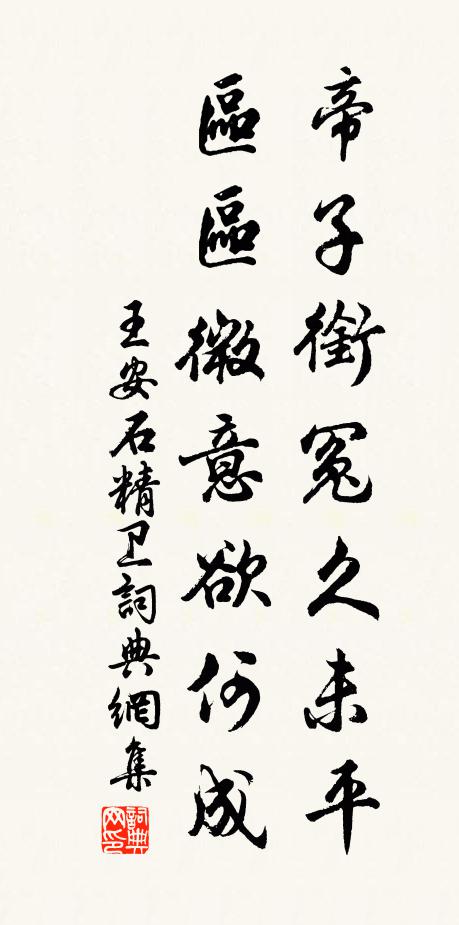 帝子銜冤久未平
區區微意欲何成
王安石精卫詞典網集
詞典
网印